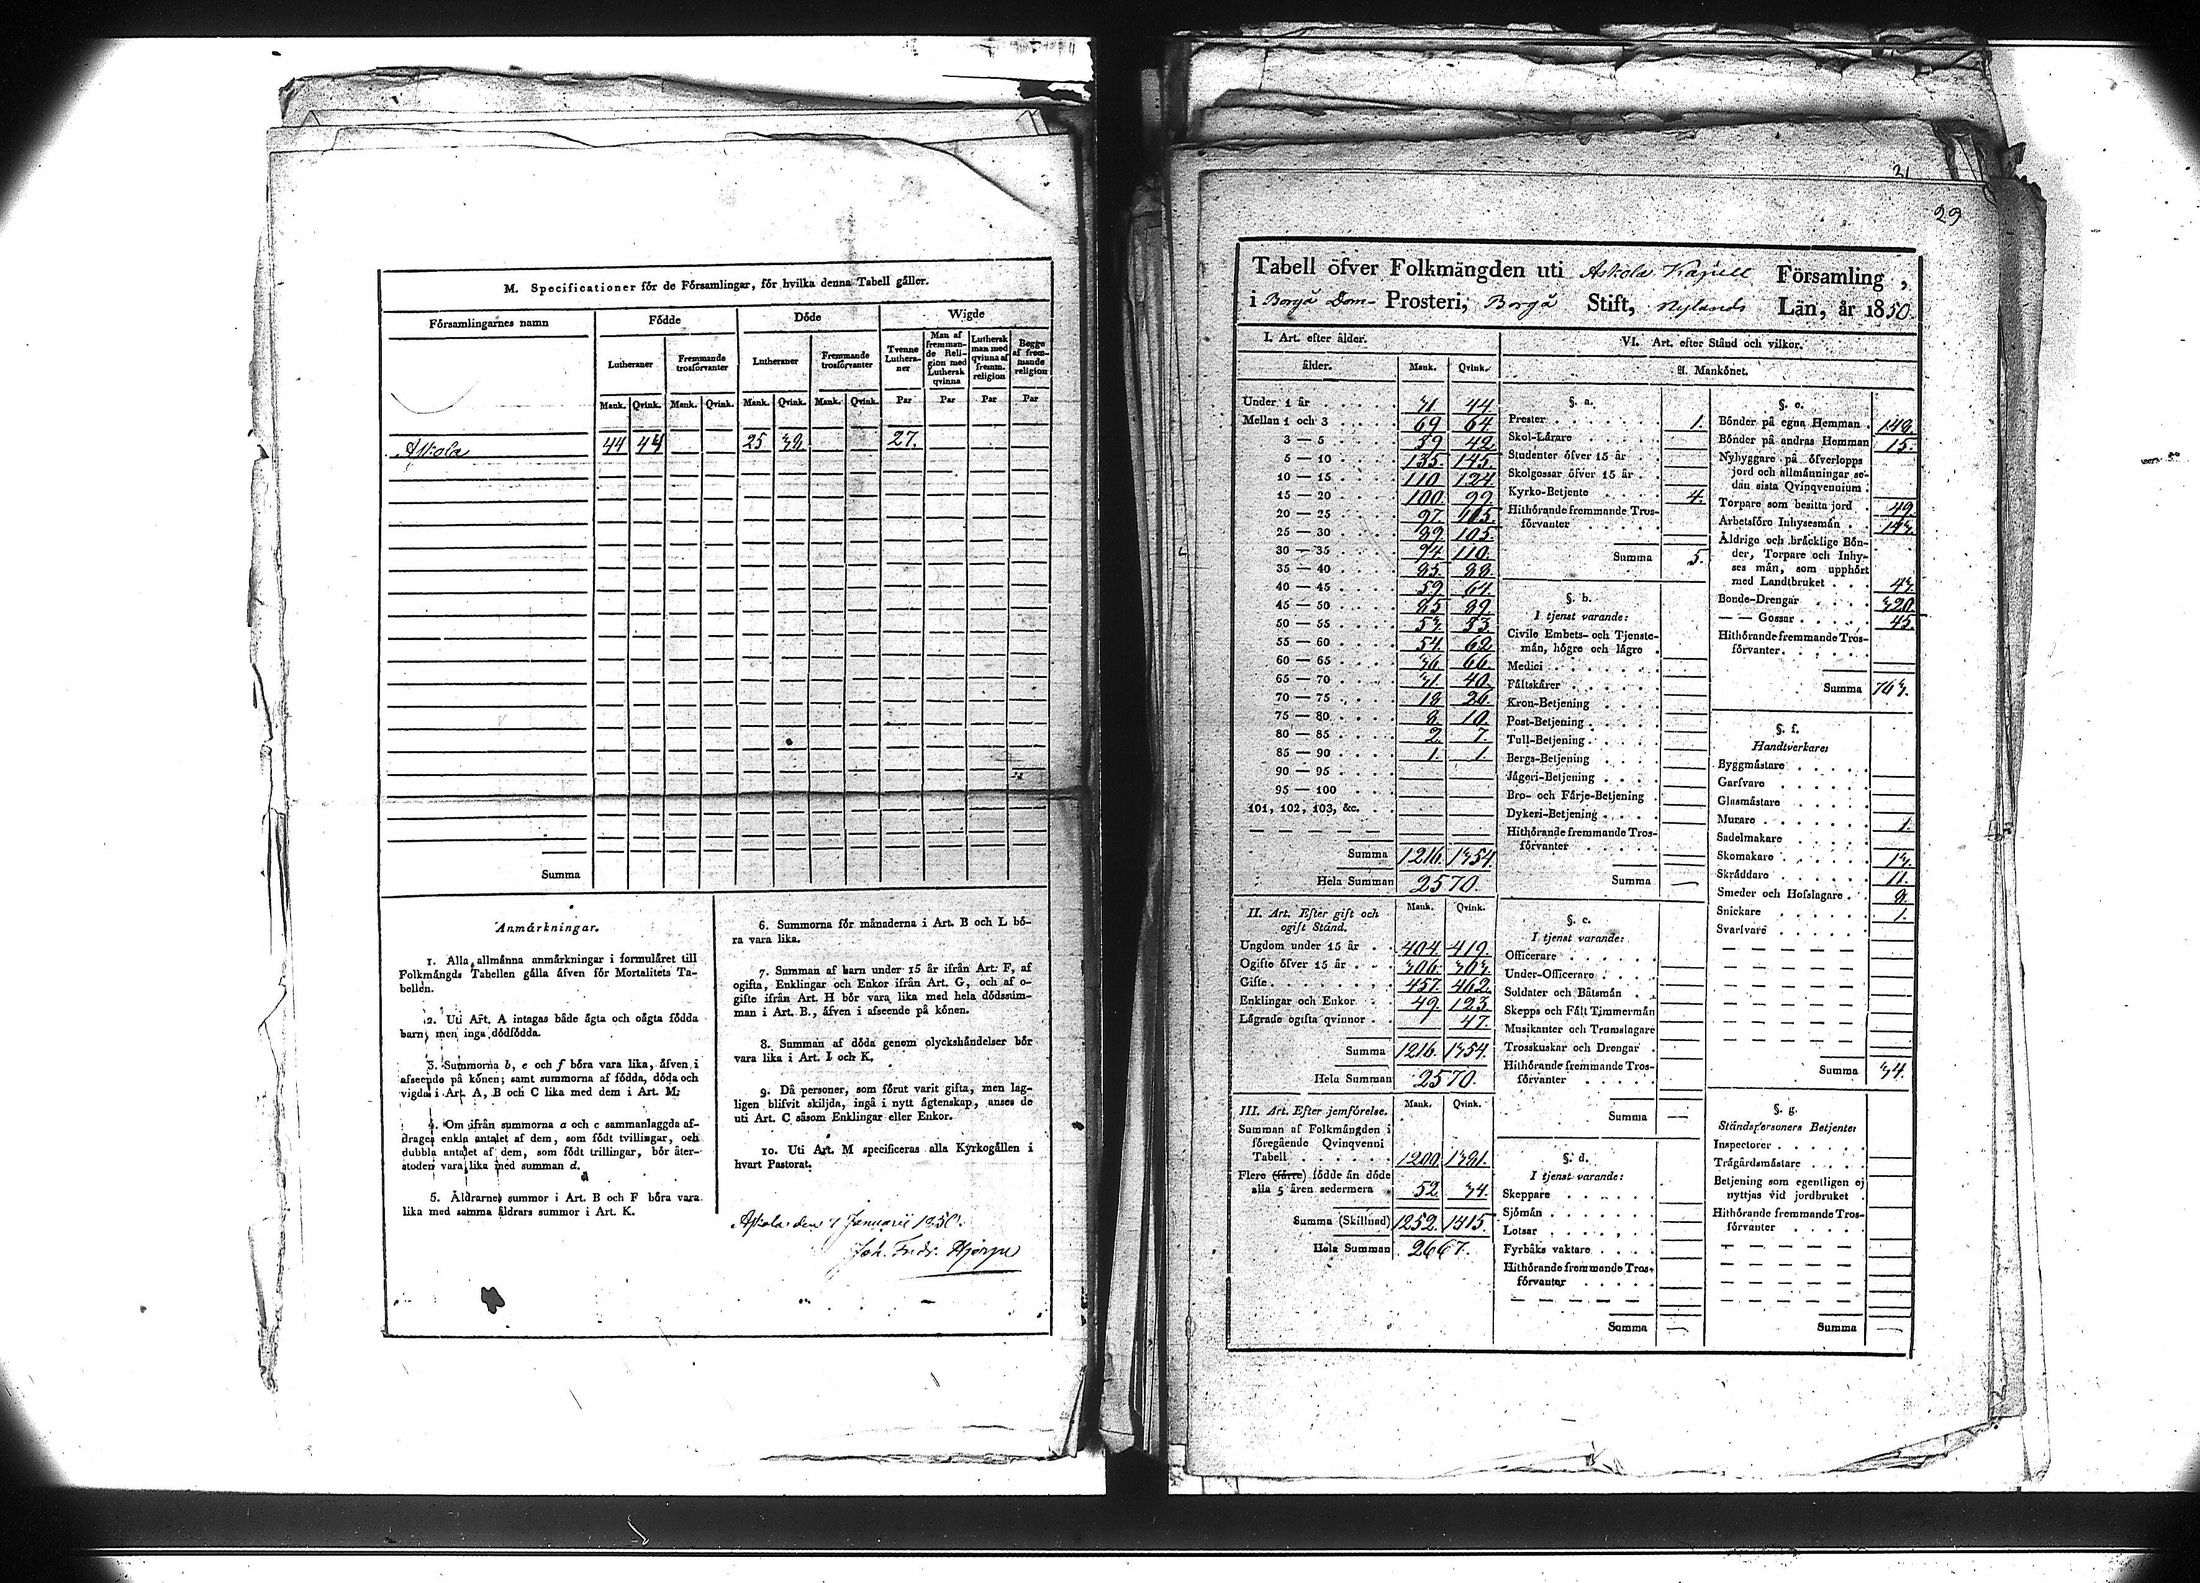 M. Specificationer för de Församlingar, för hvilka denna Tabell gäller.
Församlingarnes namn
Födde
Döde
Wigde
Lutheraner
Fremmande trosförvanter
Lutheraner
Fremmande trosförvanter
Tvenne Lutheraner
Man af fremmande Religion med Luthersk qvinna
Luthersk man med qvinna af fremm. religion
Begge af fremmande religion
Mank. Qvink. Mank. Qvink. Mank. Qvink. Mank. Qvink. Par Par Par Par
Askola 44 44 25 38 27.
Summa
Anmärkningar.
1. Alla allmänna anmärkningar i formuläret till
Folkmängds Tabellen gälla äfven för Mortalitets Ta-
bellen.
2. Uti Art. A intagas både ägta och oägta födda
barn, men inga dödfödda.
3. Summorna b, e och f böra vara lika, äfven i
afseende på könen; samt summorna af födda, döda och
vigda i Art. A, B och C lika med dem i Art. M.
4. Om ifrån summorna a och c sammanlaggda af-
drages enkla antalet af dem, som födt tvillingar, och
dubbla antalet af dem, som födt trillingar, bör åter-
stoden vara lika med summan d.
5. Åldrarnes summor i Art. B och F böra vara
lika med samma åldrars summor i Art. K.
6. Summorna för månaderna i Art. B och L bö-
ra vara lika.
7. Summan af barn under 15 år ifrån Art. F, af
ogifta, Enklingar och Enkor ifrån Art. G, och af o-
gifte ifrån Art. H bör vara lika med hela dödssum-
man i Art. B., äfven i afseende på könen.
8. Summan af döda genom olyckshändelser bör
vara lika i Art. I och K.
9. Då personer, som förut varit gifta, men lag-
ligen blifvit skiljda, ingå i nytt ägtenskap, anses de
uti Art. C såsom Enklingar eller Enkor.
10. Uti Art. M specificeras alla Kyrkogällen i
hvart Pastorat.
Askola den 7 Januarii 1850.
Joh. Fredr.
21
29
Tabell öfver Folkmängden uti Askola Kapell Församling,
i Borgå Dom- Prosteri, Borgå Stift, Nylands Län, år 1850.
I. Art. efter ålder.
ålder. Mank. Qvink.
Under 1 år 31 44
Mellan 1 och 3 69 64
3 — 5 39 42
5 — 10 135. 145.
10 — 15 110 124
15 — 20 100. 99.
20 — 25 97. 105.
25 — 30 89 105.
30 — 35 94 110.
35 — 40 85. 88.
40 — 45 59 64.
45 — 50 85 89
50 — 55 53. 53
55 — 60 54. 62
60 — 65 36 66.
65 — 70 31. 40.
70 — 75 18 26.
75 — 80 8. 10.
80 — 85 2. 7.
85 — 90 1. 1.
90 — 95
95 — 100
101, 102, 103, &c.
Summa 1216. 1354.
Hela Summan 2570.
II. Art. Efter gift och
ogift Stånd.
Mank. Qvink.
Ungdom under 15 år 404. 419.
Ogifte öfver 15 år 306. 303.
Gifte 457. 462.
Enklingar och Enkor 49. 123.
Lägrade ogifta qvinnor 47.
Summa 1216. 1354.
Hela Summan 2570.
III. Art. Efter jemförelse. Mank. Qvink.
Summan af Folkmängden i
föregående Qvinqvenni
Tabell 1200. 1381.
Flere (färre) födde än döde
alla 5 åren sedermera 52. 34.
Summa (Skillnad) 1252. 1415.
Hela Summan 2667.
VI. Art. efter Stånd och vilkor.
A. Mankönet.
§. a.
Prester 1.
Skol-Lärare
Studenter öfver 15 år
Skolgossar öfver 15 år
Kyrko-Betjente 4.
Hithörande fremmande Tros-
förvanter
Summa 5.
§. b.
I tjenst varande:
Civile Embets- och Tjenste-
män, högre och lägre
Medici
Fältskärer
Kron-Betjening
Post-Betjening
Tull-Betjening
Bergs-Betjening
Jägeri-Betjening
Bro- och Färje-Betjening
Dykeri-Betjening
Hithörande fremmande Tros-
förvanter
Summa —
§. c.
I tjenst varande:
Officerare
Under-Officerare
Soldater och Båtsmän
Skepps och Fält Timmermän
Musikanter och Trumslagare
Trosskuskar och Drengar
Hithörande fremmande Tros-
förvanter
Summa —
§. d.
I tjenst varande:
Skeppare
Sjömän
Lotsar
Fyrbåks vaktare
Hithörande fremmande Tros-
förvanter
Summa —
§. e.
Bönder på egna Hemman 149.
Bönder på andras Hemman 15.
Nybyggare på öfverlopps
jord och allmänningar se-
dan sista Qvinqvennium
Torpare som besitta jord 49.
Arbetsföre Inhysesmän 143.
Åldrige och bräcklige Bön-
der, Torpare och Inhy-
ses män, som upphört
med Landtbruket 43.
Bonde-Drengar 320.
— — Gossar 45.
Hithörande fremmande Tros-
förvanter
Summa 763.
§. f.
Handtverkare:
Byggmästare
Garfvare
Glasmästare
Murare 1.
Sadelmakare
Skomakare 13.
Skräddare 11.
Smeder och Hofslagare 8.
Snickare 1.
Svarfvare
Summa 34.
§. g.
Ståndspersoners Betjente:
Inspectorer
Trägårdsmästare
Betjening som egentligen ej
nyttjas vid jordbruket
Hithörande fremmande Tros-
förvanter
Summa —